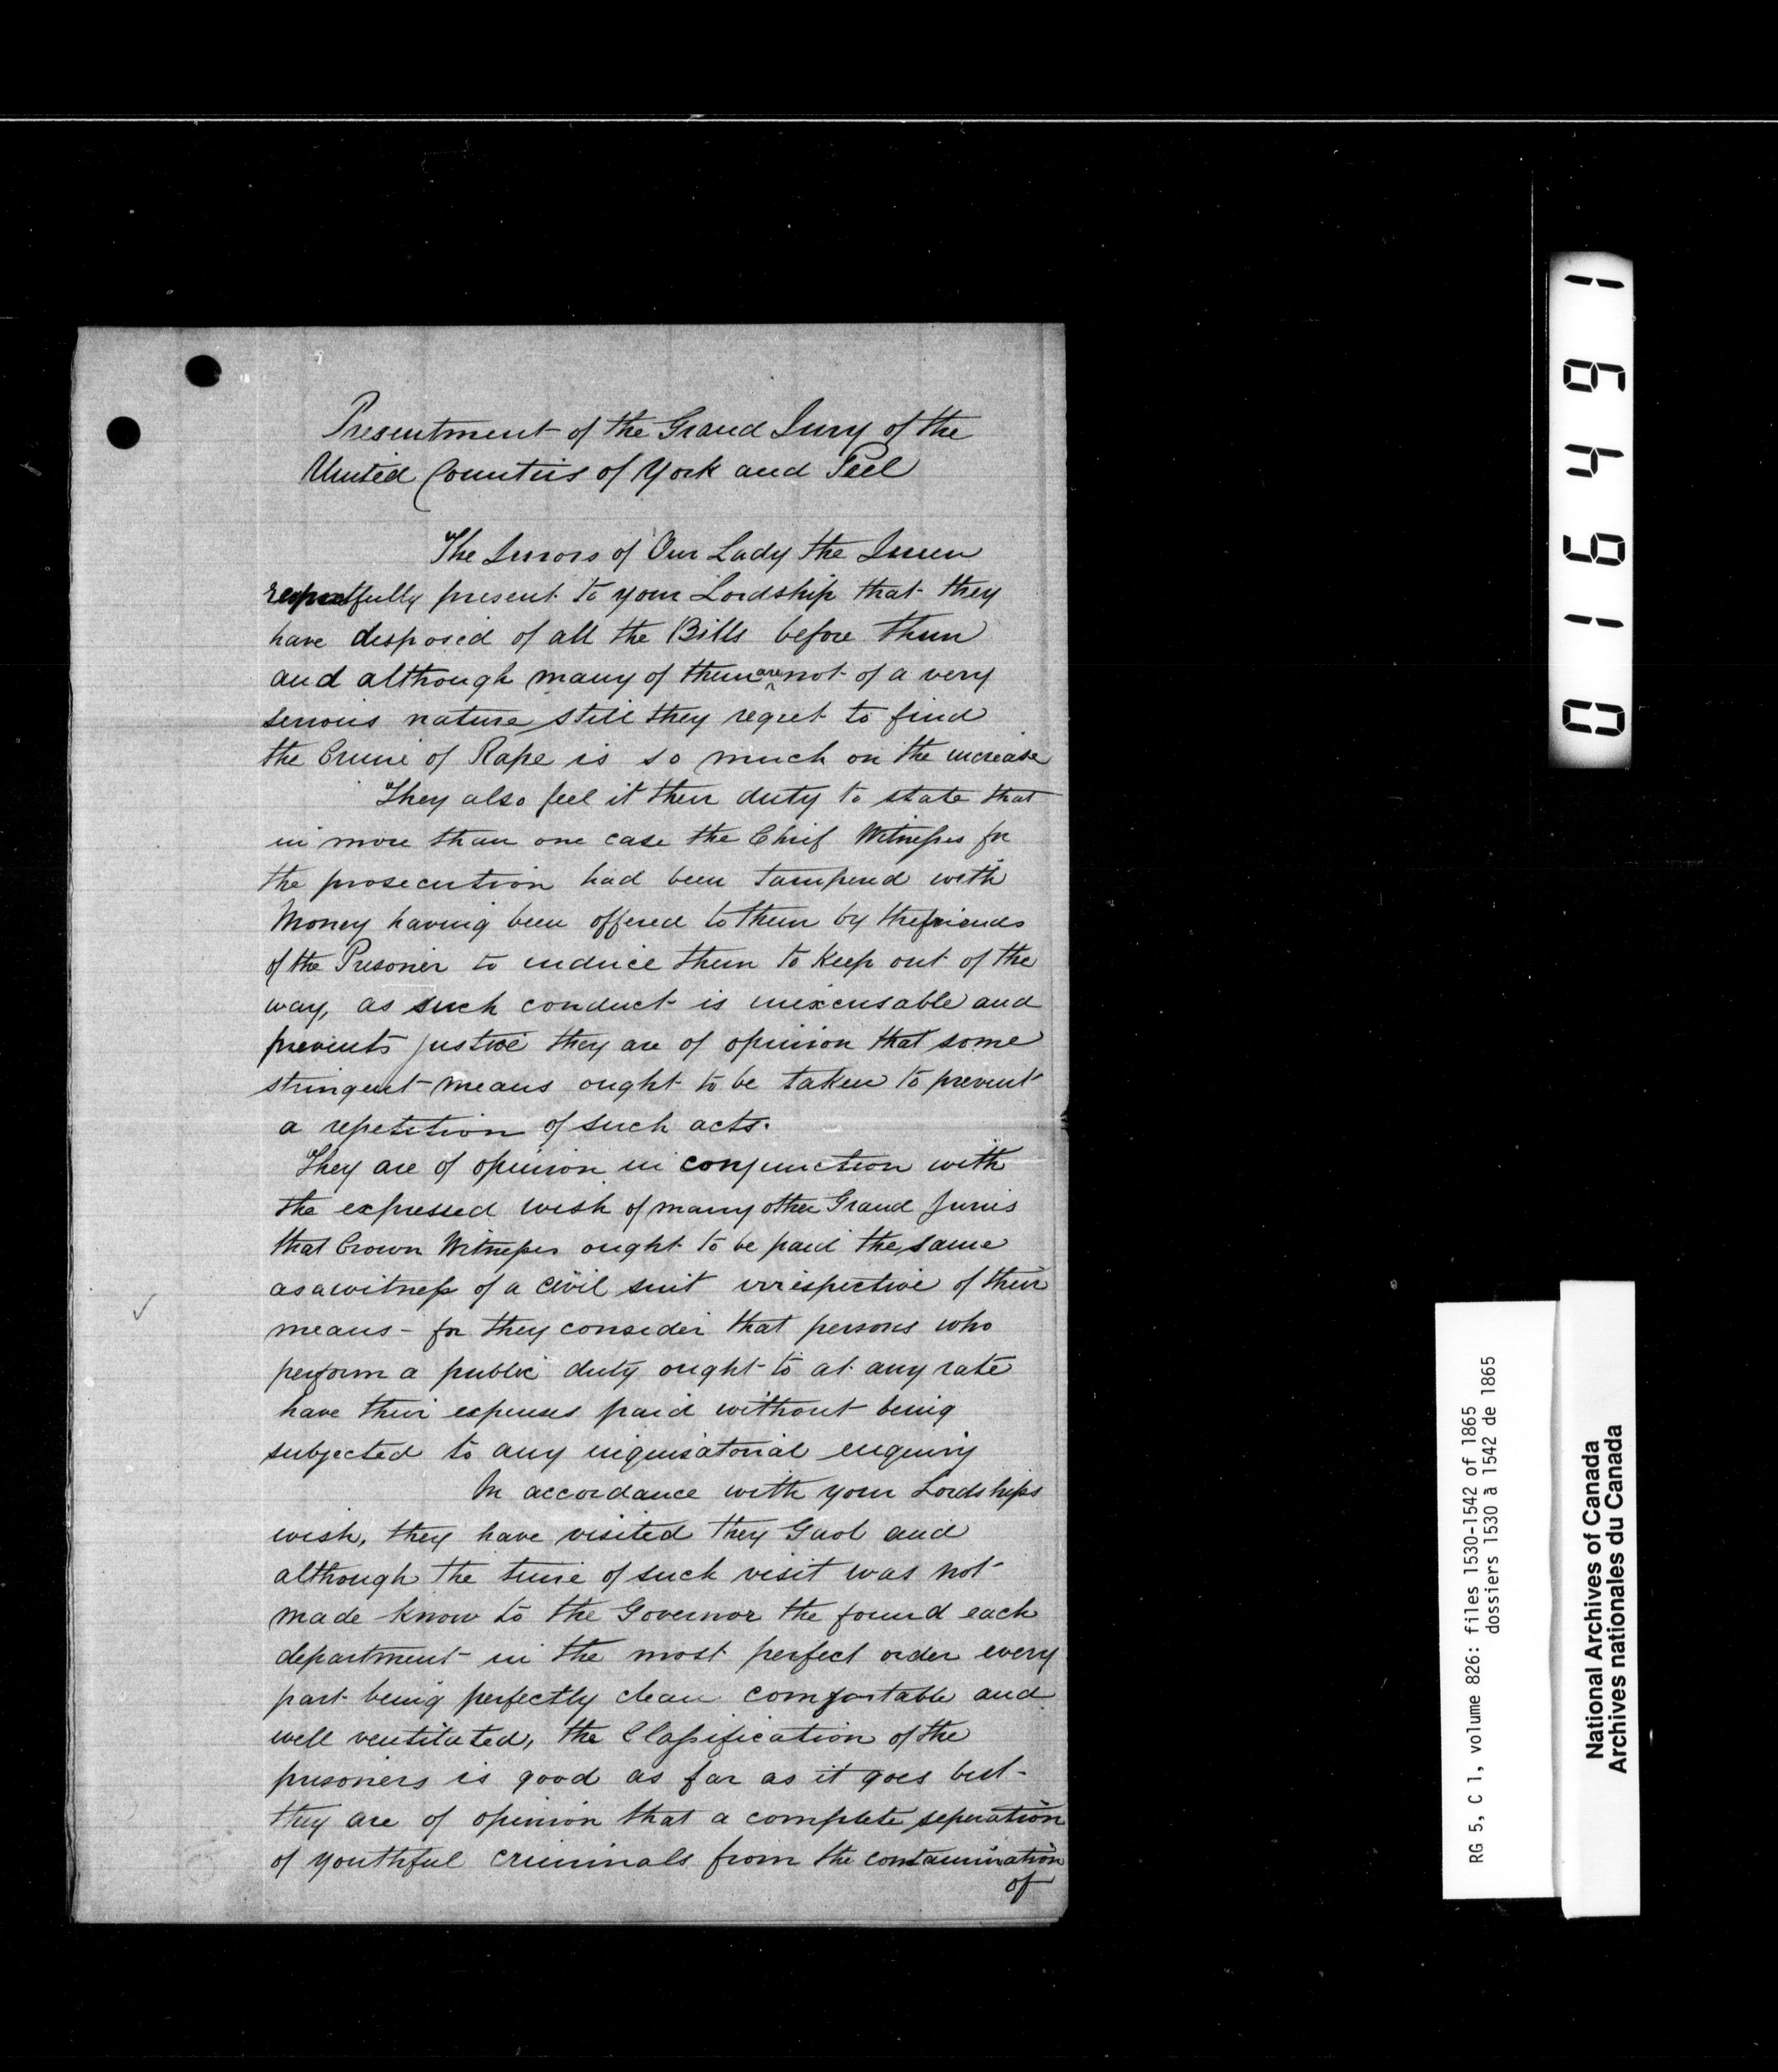 Presentment of the Grand Jury of the
United Counties of York and Peel
The Jurors of Our Lady the Queen
respectfully present to your Lordship that they
have disposed of all the Bills before them
and although many of them are not of a very
serious nature still they regret to find
the Crime of Rape is so much on the increase
They also feel it their duty to state that
in more than one case the Chief Witnesses for
the prosecution had been tampered with
Money having been offered to them by the friends
of the Prisoner to induce them to keep out of the
way, as such conduct is inexcusable and
prevents justice they are of opinion that some
stringent means ought to be taken to prevent
a repetition of such acts.
They are of opinion in conjunction with
the expressed wish of many other Grand Juries
that Crown Witnesses ought to be paid the same
as a witness of a civil suit irrespective of their
means - for they consider that persons who
perform a public duty ought to at any rate
have their expenses paid without being
subjected to any inquisatorial enquiry
In accordance with your Lordships
wish, they have visited they Gaol and
although the time of such visit was not
made know to the Governor the found each
department in the most perfect order every
part being perfectly clean comfortable and
well ventilated, the Classification of the
prisoners is good as far as it goes but
they are of opinion that a complete seperation
of youthful criminals from the contamination
of
016491
RG 5, C 1, volume 826: files 1530-1542 of 1865
dossiers 1530 à 1542 de 1865
National Archives of Canada
Archives nationales du Canada